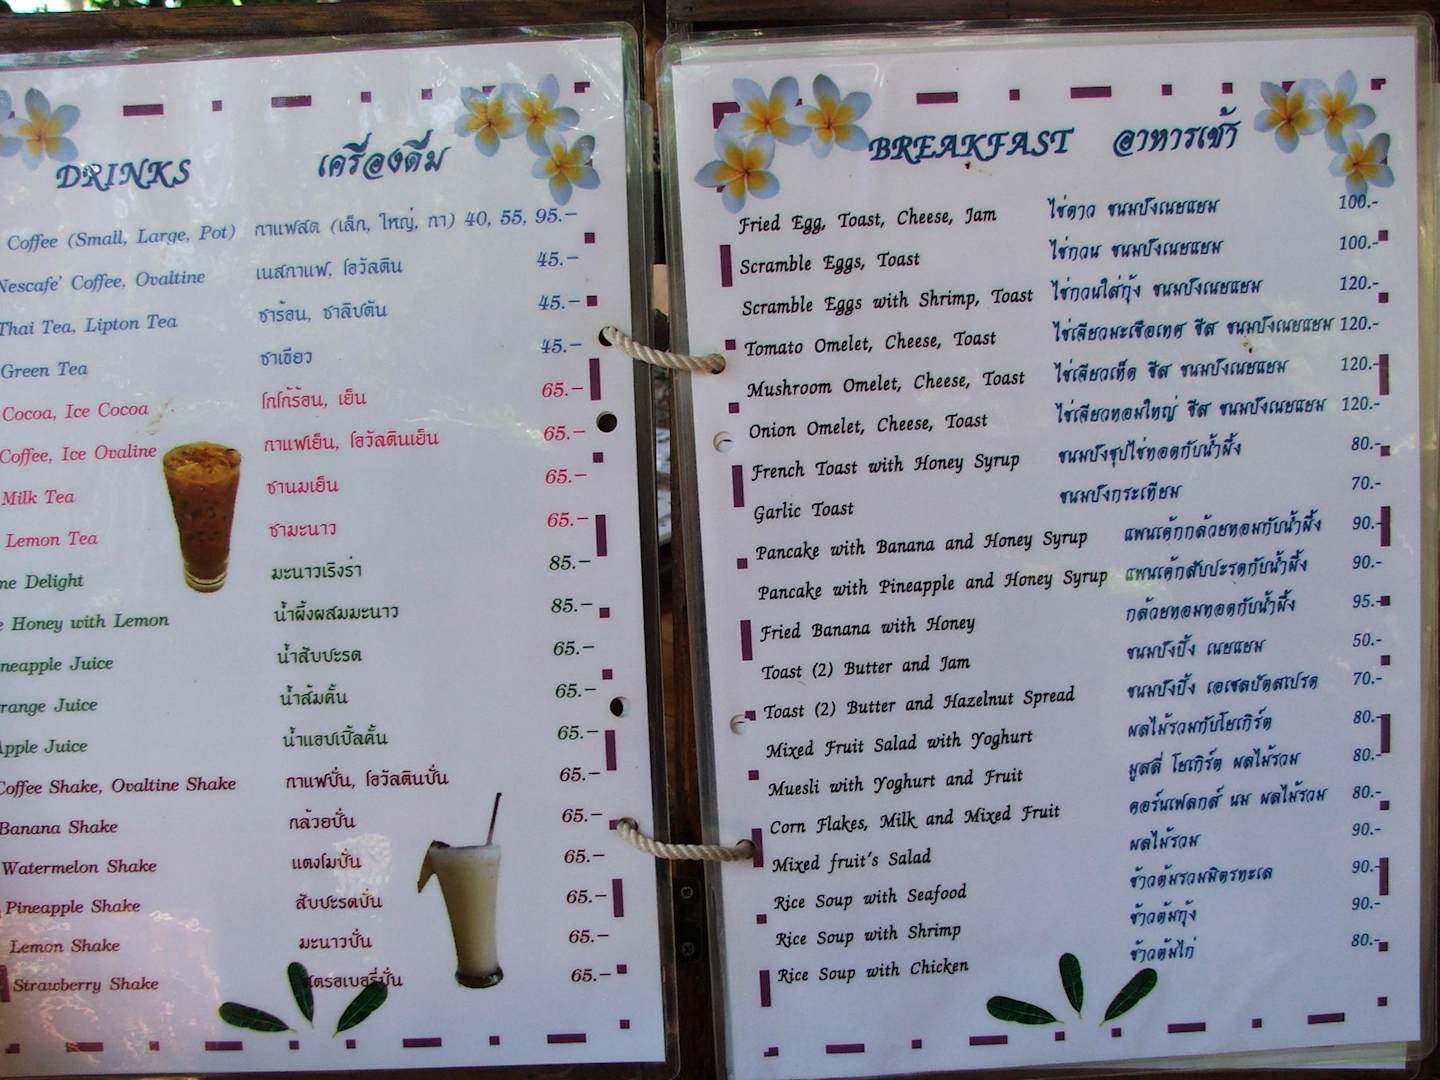 DRINKS เครื่องดื่ม
Coffee (Small, Large, Pot) กาแฟสด (เล็ก, ใหญ่, กา) 40, 55, 95.-
Nescafe' Coffee, Ovaltine เนสกาแฟ, โอวัลติน 45.-
Thai Tea, Lipton Tea ชาร้อน, ชาลิปตัน 45.-
Green Tea ชาเขียว 45.-
Cocoa, Ice Cocoa โกโก้ร้อน, เย็น 65.-
Coffee, Ice Ovaline กาแฟเย็น, โอวัลตินเย็น 65.-
Milk Tea ชานมเย็น 65.-
Lemon Tea ชามะนาว 65.-
Delight มะนาวเริงร่า 85.-
Honey with Lemon น้ำผึ้งผสมมะนาว 85.-
neapple Juice น้ำสับปะรด 65.-
range Juice น้ำส้มคั้น 65.-
Apple Juice น้ำแอปเปิ้ลคั้น 65.-
Coffee Shake, Ovaltine Shake กาแฟปั่น, โอวัลตินปั่น 65.-
Banana Shake กล้วยปั่น 65.-
Watermelon Shake แตงโมปั่น 65.-
Pineapple Shake สับปะรดปั่น 65.-
Lemon Shake มะนาวปั่น 65.-
Strawberry Shake สตรอเบอรี่ปั่น 65.-
BREAKFAST อาหารเช้า
Fried Egg, Toast, Cheese, Jam ไข่ดาว ขนมปังเนยแยม 100.-
Scramble Eggs, Toast ไข่กวน ขนมปังเนยแยม 100.-
Scramble Eggs with Shrimp, Toast ไข่กวนใส่กุ้ง ขนมปังเนยแยม 120.-
Tomato Omelet, Cheese, Toast ไข่เจียวมะเขือเทศ ชีส ขนมปังเนยแยม 120.-
Mushroom Omelet, Cheese, Toast ไข่เจียวเห็ด ชีส ขนมปังเนยแยม 120.-
Onion Omelet, Cheese, Toast ไข่เจียวหอมใหญ่ ชีส ขนมปังเนยแยม 120.-
French Toast with Honey Syrup ขนมปังชุปไข่ทอดกับน้ำผึ้ง 80.-
Garlic Toast ขนมปังกระเทียม 70.-
Pancake with Banana and Honey Syrup แพนเค้กกล้วยหอมกับน้ำผึ้ง 90.-
Pancake with Pineapple and Honey Syrup แพนเค้กสับปะรดกับน้ำผึ้ง 90.-
Fried Banana with Honey กล้วยหอมทอดกับน้ำผึ้ง 95.-
Toast (2) Butter and Jam ขนมปังปิ้ง เนยแยม 50.-
Toast (2) Butter and Hazelnut Spread ขนมปังปิ้ง เฮเซลนัตสเปรด 70.-
Mixed Fruit Salad with Yoghurt ผลไม้รวมกับโยเกิร์ต 80.-
Muesli with Yoghurt and Fruit มูสลี่ โยเกิร์ต ผลไม้รวม 80.-
Corn Flakes, Milk and Mixed Fruit คอร์นเฟลกส์ นม ผลไม้รวม 80.-
Mixed fruit's Salad ผลไม้รวม 90.-
Rice Soup with Seafood ข้าวต้มรวมมิตรทะเล 90.-
Rice Soup with Shrimp ข้าวต้มกุ้ง 90.-
Rice Soup with Chicken ข้าวต้มไก่ 80.-